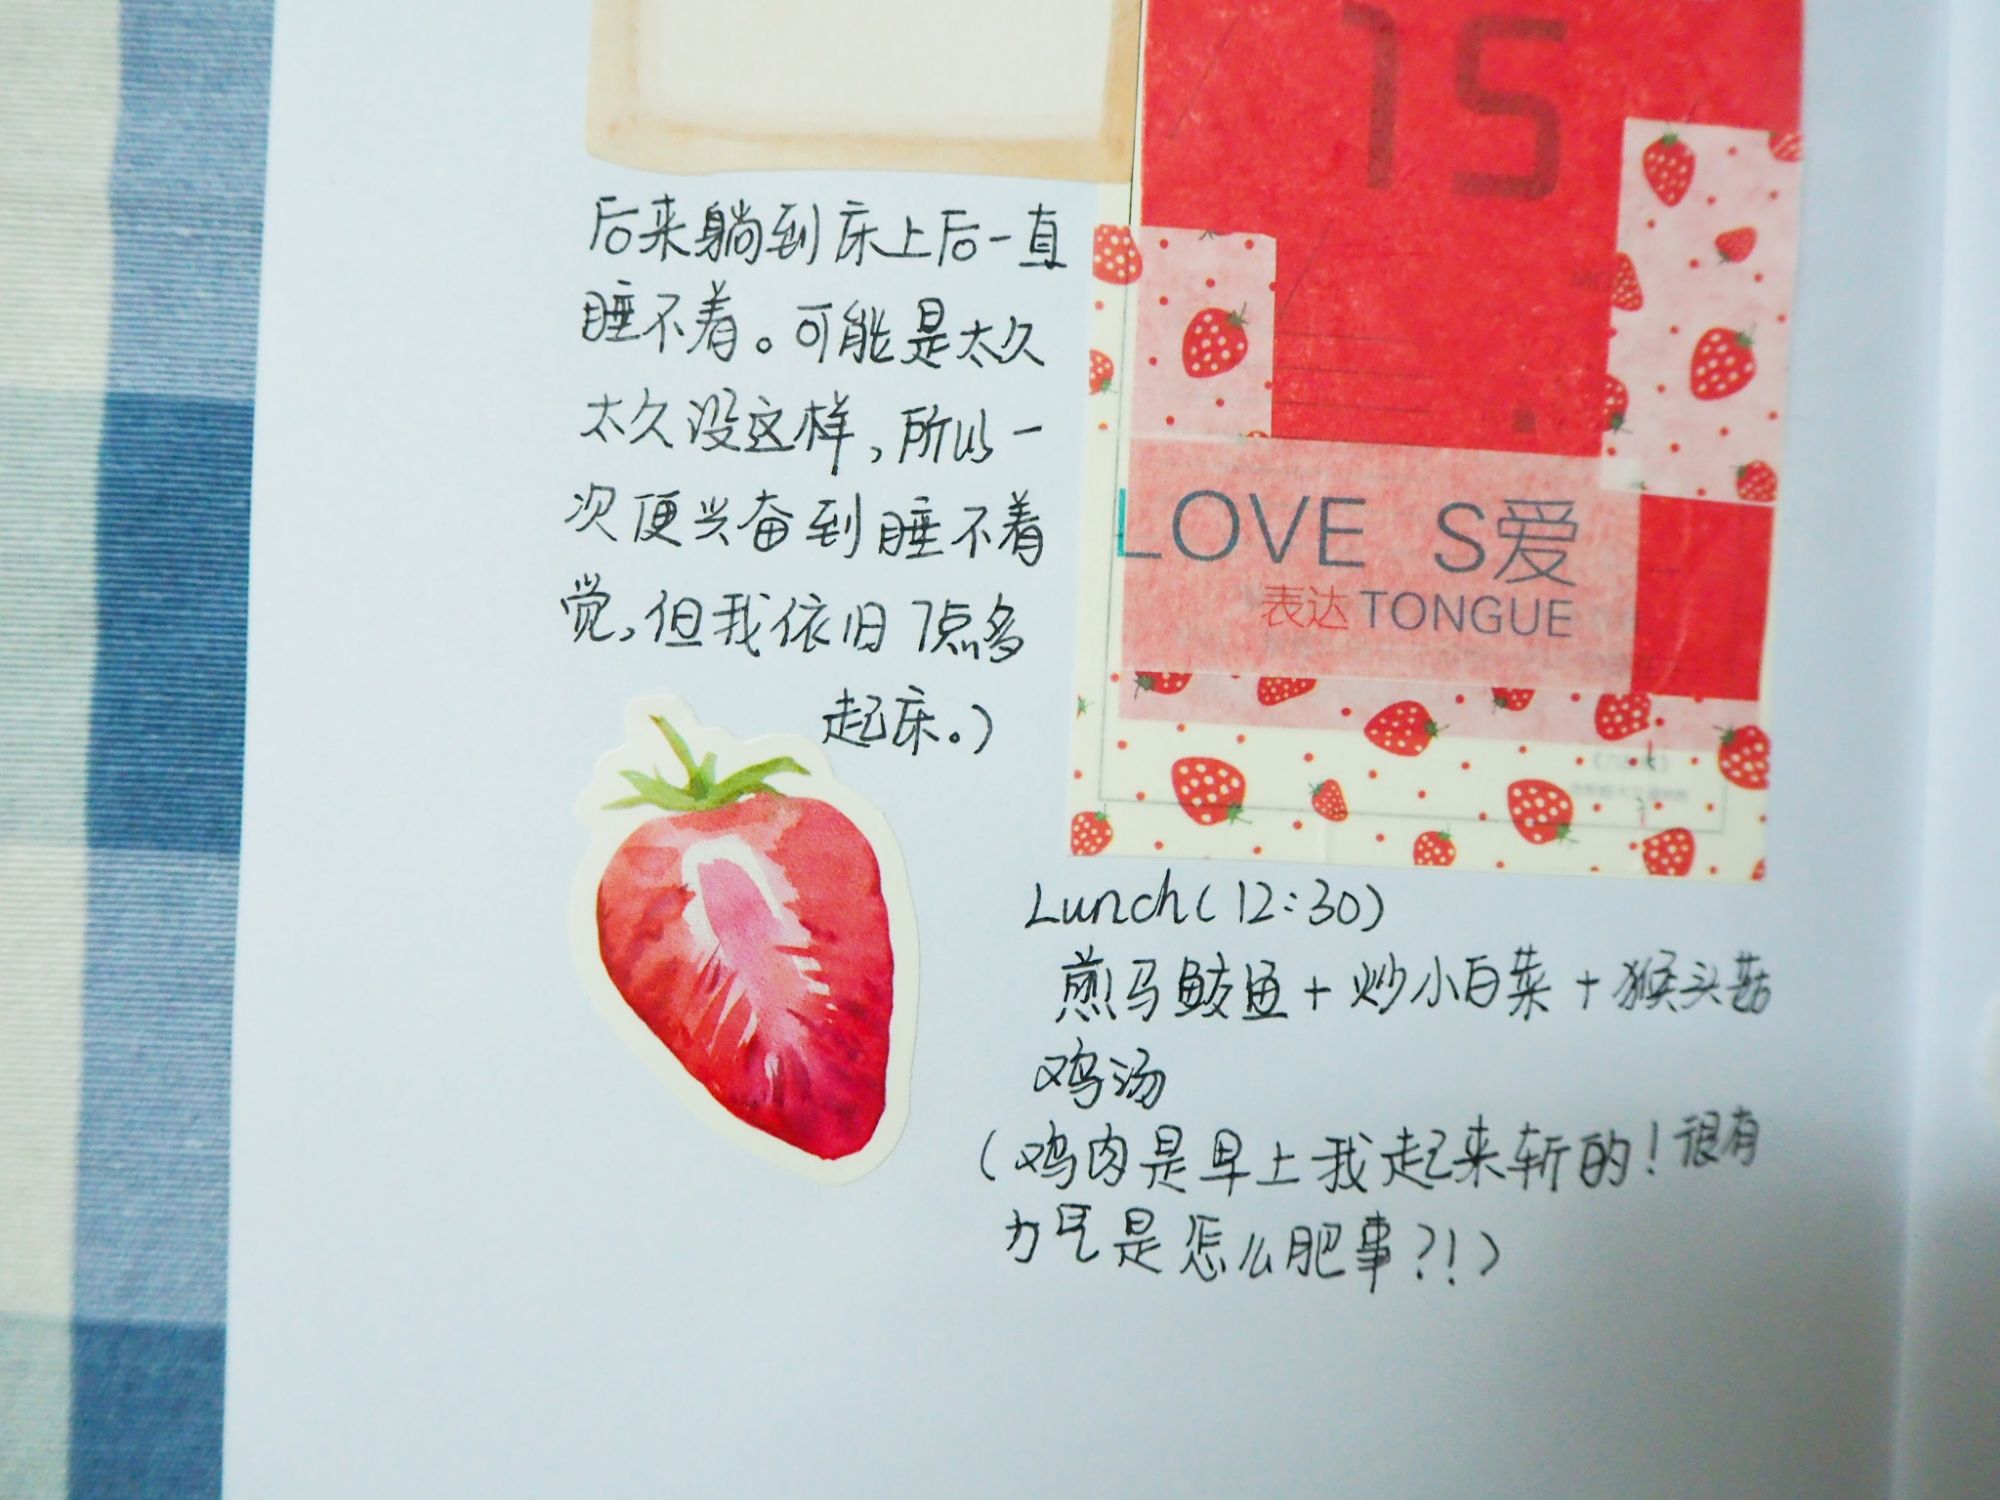 15
后来躺到床上后一直
睡不着。可能是太久
太久没这样，所以一
次便兴奋到睡不着
觉，但我依旧7点多
起床。）
LOVE S爱
表达TONGUE
Lunch(12:30)
煎马鲛鱼+炒小白菜+猴头菇
鸡汤
（鸡肉是早上我起来斩的！很有
力气是怎么肥事?!）